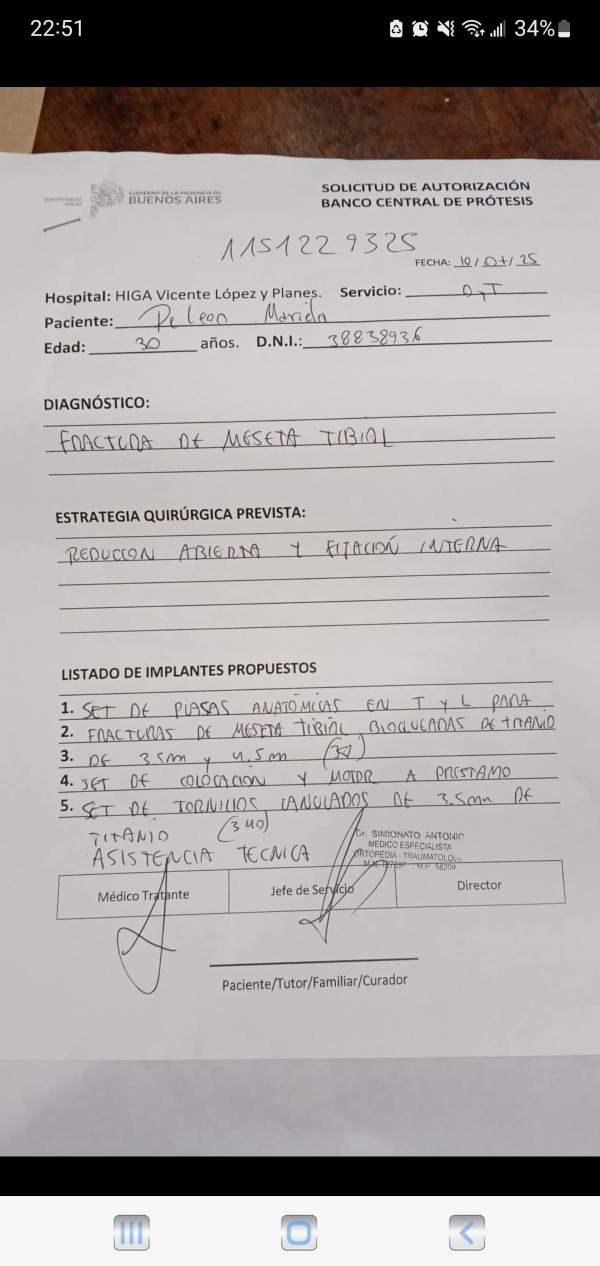 22:51
34%
GOBIERNO DE LA PROVINCIA DE
BUENOS AIRES
SOLICITUD DE AUTORIZACIÓN
BANCO CENTRAL DE PRÓTESIS
1151229325
FECHA: 10/07/25
Hospital: HIGA Vicente López y Planes. Servicio: OyT
Paciente: De Leon Mariela
Edad: 30 años. D.N.I.: 38838936
DIAGNÓSTICO:
FRACTURA DE MESETA TIBIAL
ESTRATEGIA QUIRÚRGICA PREVISTA:
REDUCCION ABIERTA Y FIJACIÓN INTERNA
LISTADO DE IMPLANTES PROPUESTOS
1. SET DE PLASAS ANATÓMICAS EN T Y L PARA
2. FRACTURAS DE MESETA TIBIAL BLOQUEADAS DE TITANIO
3. DE 3.5mm y 4.5m
4. SET DE COLOCACION Y MOTOR A PRESTAMO
5. SET DE TORNILLOS CANULADOS DE 3.5mm DE
TITANIO (3 40)
ASISTENCIA TECNICA
Dr. SIMIONATO ANTONIO
MEDICO ESPECIALISTA
ORTOPEDIA - TRAUMATOLOGIA
M.P. 58200
Médico Tratante Jefe de Servicio Director
Paciente/Tutor/Familiar/Curador